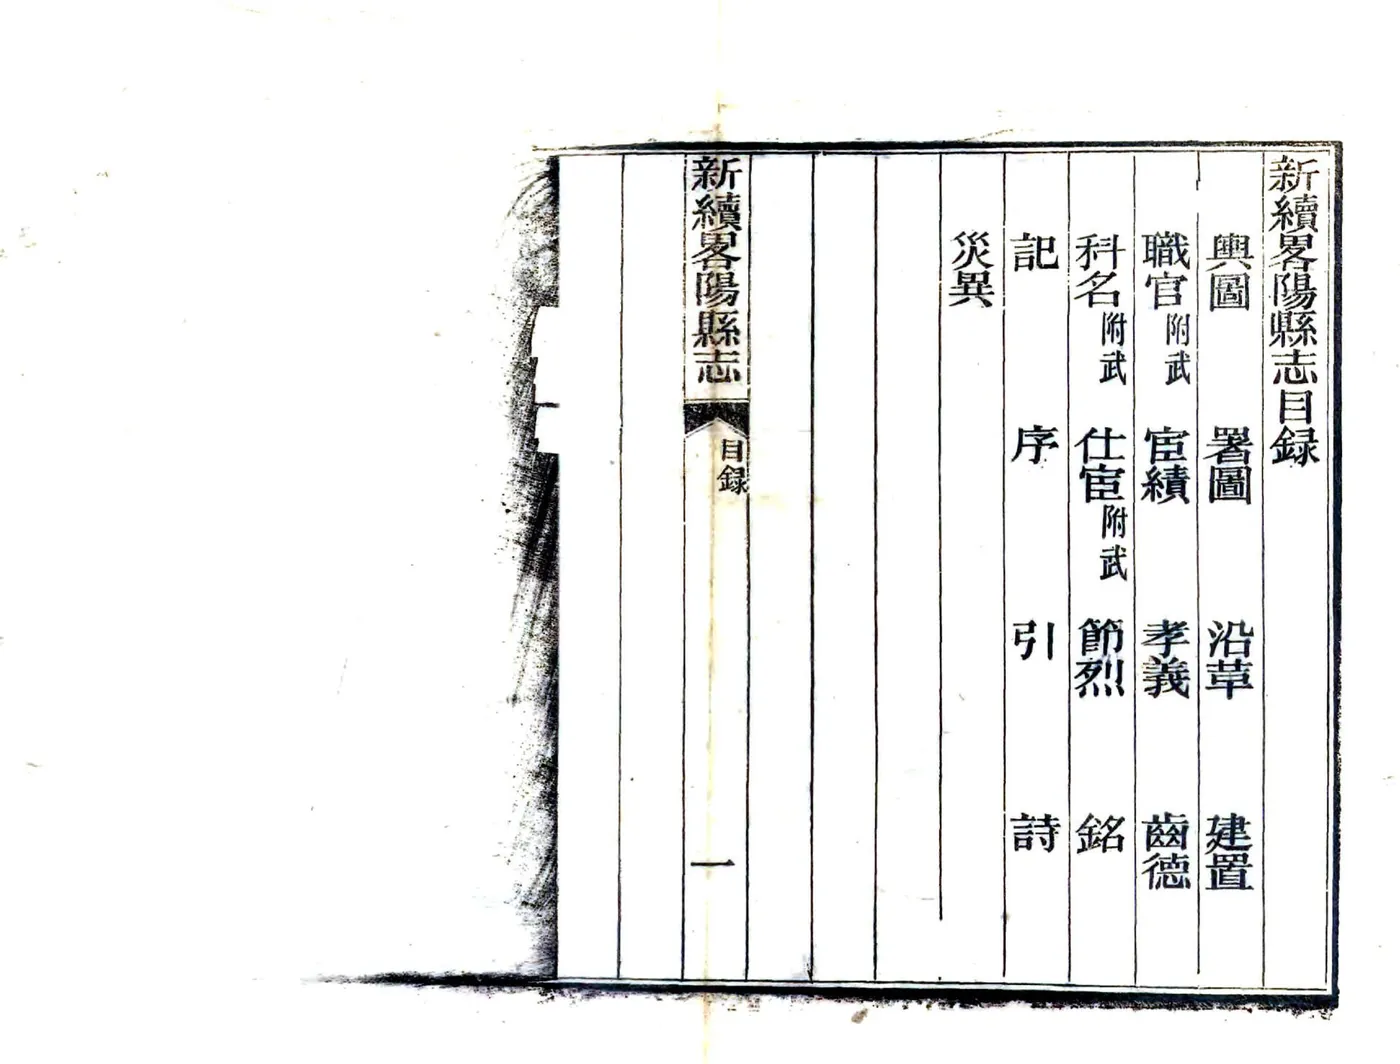 新續畧陽縣志目録
輿圖 署圖 沿革 建置
職官附武 宦績 孝義 齒德
科名附武 仕宦附武 節烈 銘
記 序 引 詩
災異
新續畧陽縣志 目録 一